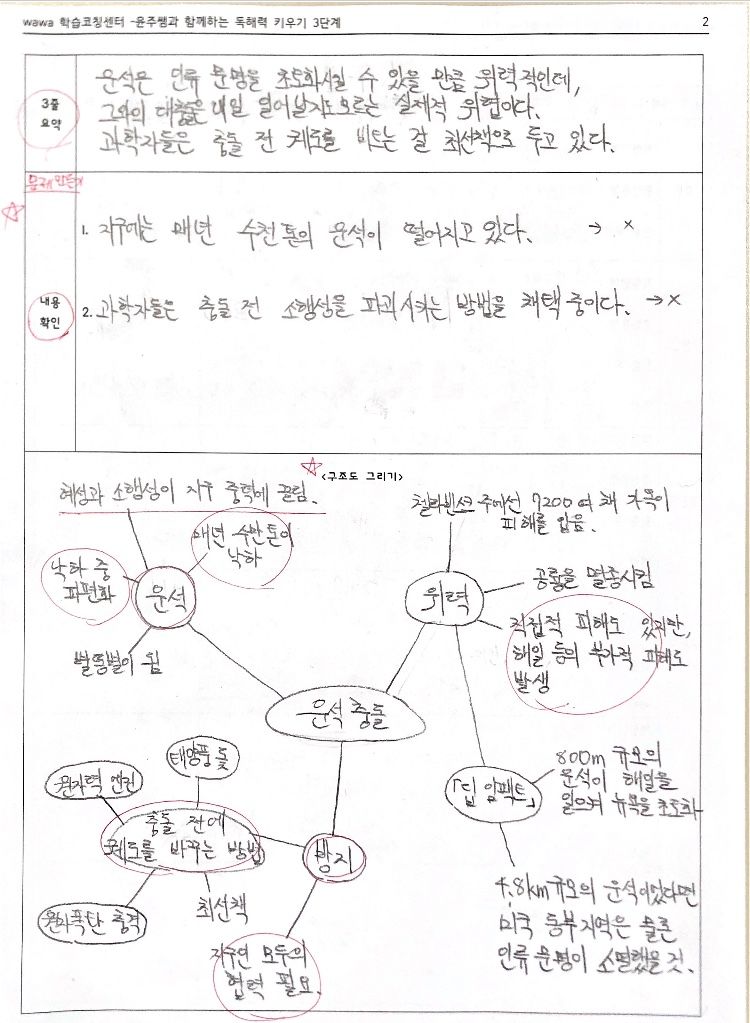 wawa 학습코칭센터 -윤주쌤과 함께하는 독해력 키우기 3단계
2
3줄
요약
운석은 인류 문명을 초토화시킬 수 있을 만큼 위력적인데,
그와의 대충돌은 내일 일어날지도 모르는 실제적 위협이다.
과학자들은 충돌 전 궤도를 비트는 걸 최선책으로 두고 있다.
문제 만들기
내용
확인
1. 지구에는 매년 수천 톤의 운석이 떨어지고 있다. → ×
2. 과학자들은 충돌 전 소행성을 파괴시키는 방법을 채택 중이다. → ×
<구조도 그리기>
혜성과 소행성이 지구 중력에 끌림.
매년 수만 톤이
낙하
낙하 중
파편화
운석
별똥별이 됨
첼랴빈스크 주에선 7200여 채 가옥이
피해를 입음.
위력
공룡을 멸종시킴
직접적 피해도 있지만,
해일 등의 부가적 피해도
발생
운석 충돌
「딥 임팩트」
800m 규모의
운석이 해일을
일으켜 뉴욕을 초토화
4.8km 규모의 운석이었다면
미국 동부지역은 물론
인류 문명이 소멸했을 것.
원자력 엔진
태양풍 돛
충돌 전에
궤도를 바꾸는 방법
방지
원자폭탄 충격
최선책
지구인 모두의
협력 필요.